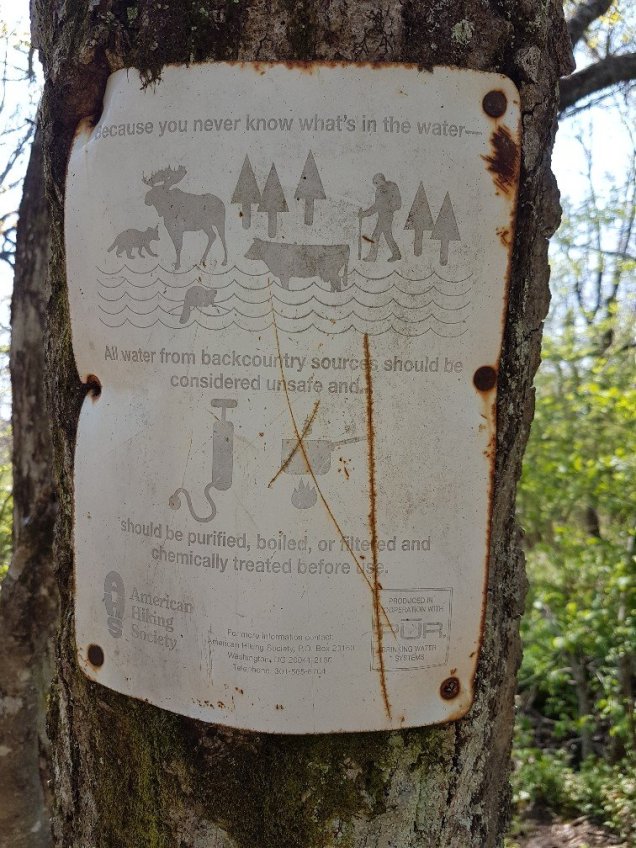 Because you never know what's in the water—
All water from backcountry sources should be
considered unsafe and...
should be purified, boiled, or filtered and
chemically treated before use.
American
Hiking
Society
For more information contact:
American Hiking Society, P.O. Box
Washington, DC
Telephone: 301-565-6704
PRODUCED IN
COOPERATION WITH
PUR.
DRINKING WATER
SYSTEMS